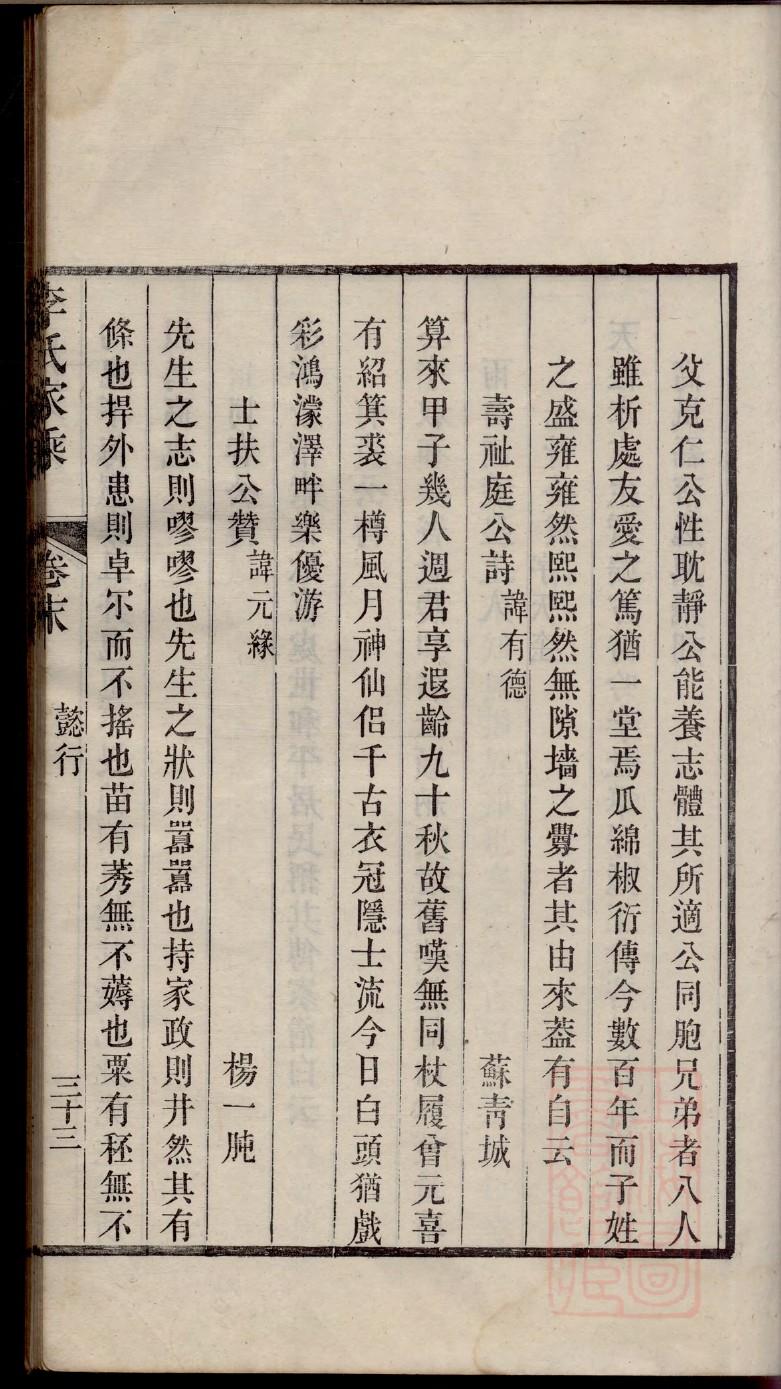 父克仁公性耽靜公能養志體其所適公同胞兄弟者八人
雖析處友愛之篤猶一堂焉瓜綿椒衍傳今數百年而子姓
之盛雍雍然熙熙然無隙墻之釁者其由來葢有自云
壽祉庭公詩 諱有德 蘇青城
算來甲子幾人週君享遐齡九十秋故舊嘆無同杖履曾元喜
有紹箕裘一樽風月神仙侶千古衣冠隱士流今日白頭猶戲
彩鴻濛澤畔樂優游
士扶公贊 諱元緣 楊一肫
先生之志則嘐嘐也先生之狀則囂囂也持家政則井然其有
條也捍外患則卓尒而不搖也苗有莠無不薅也粟有秠無不
李氏家乘 卷末 懿行 三十三